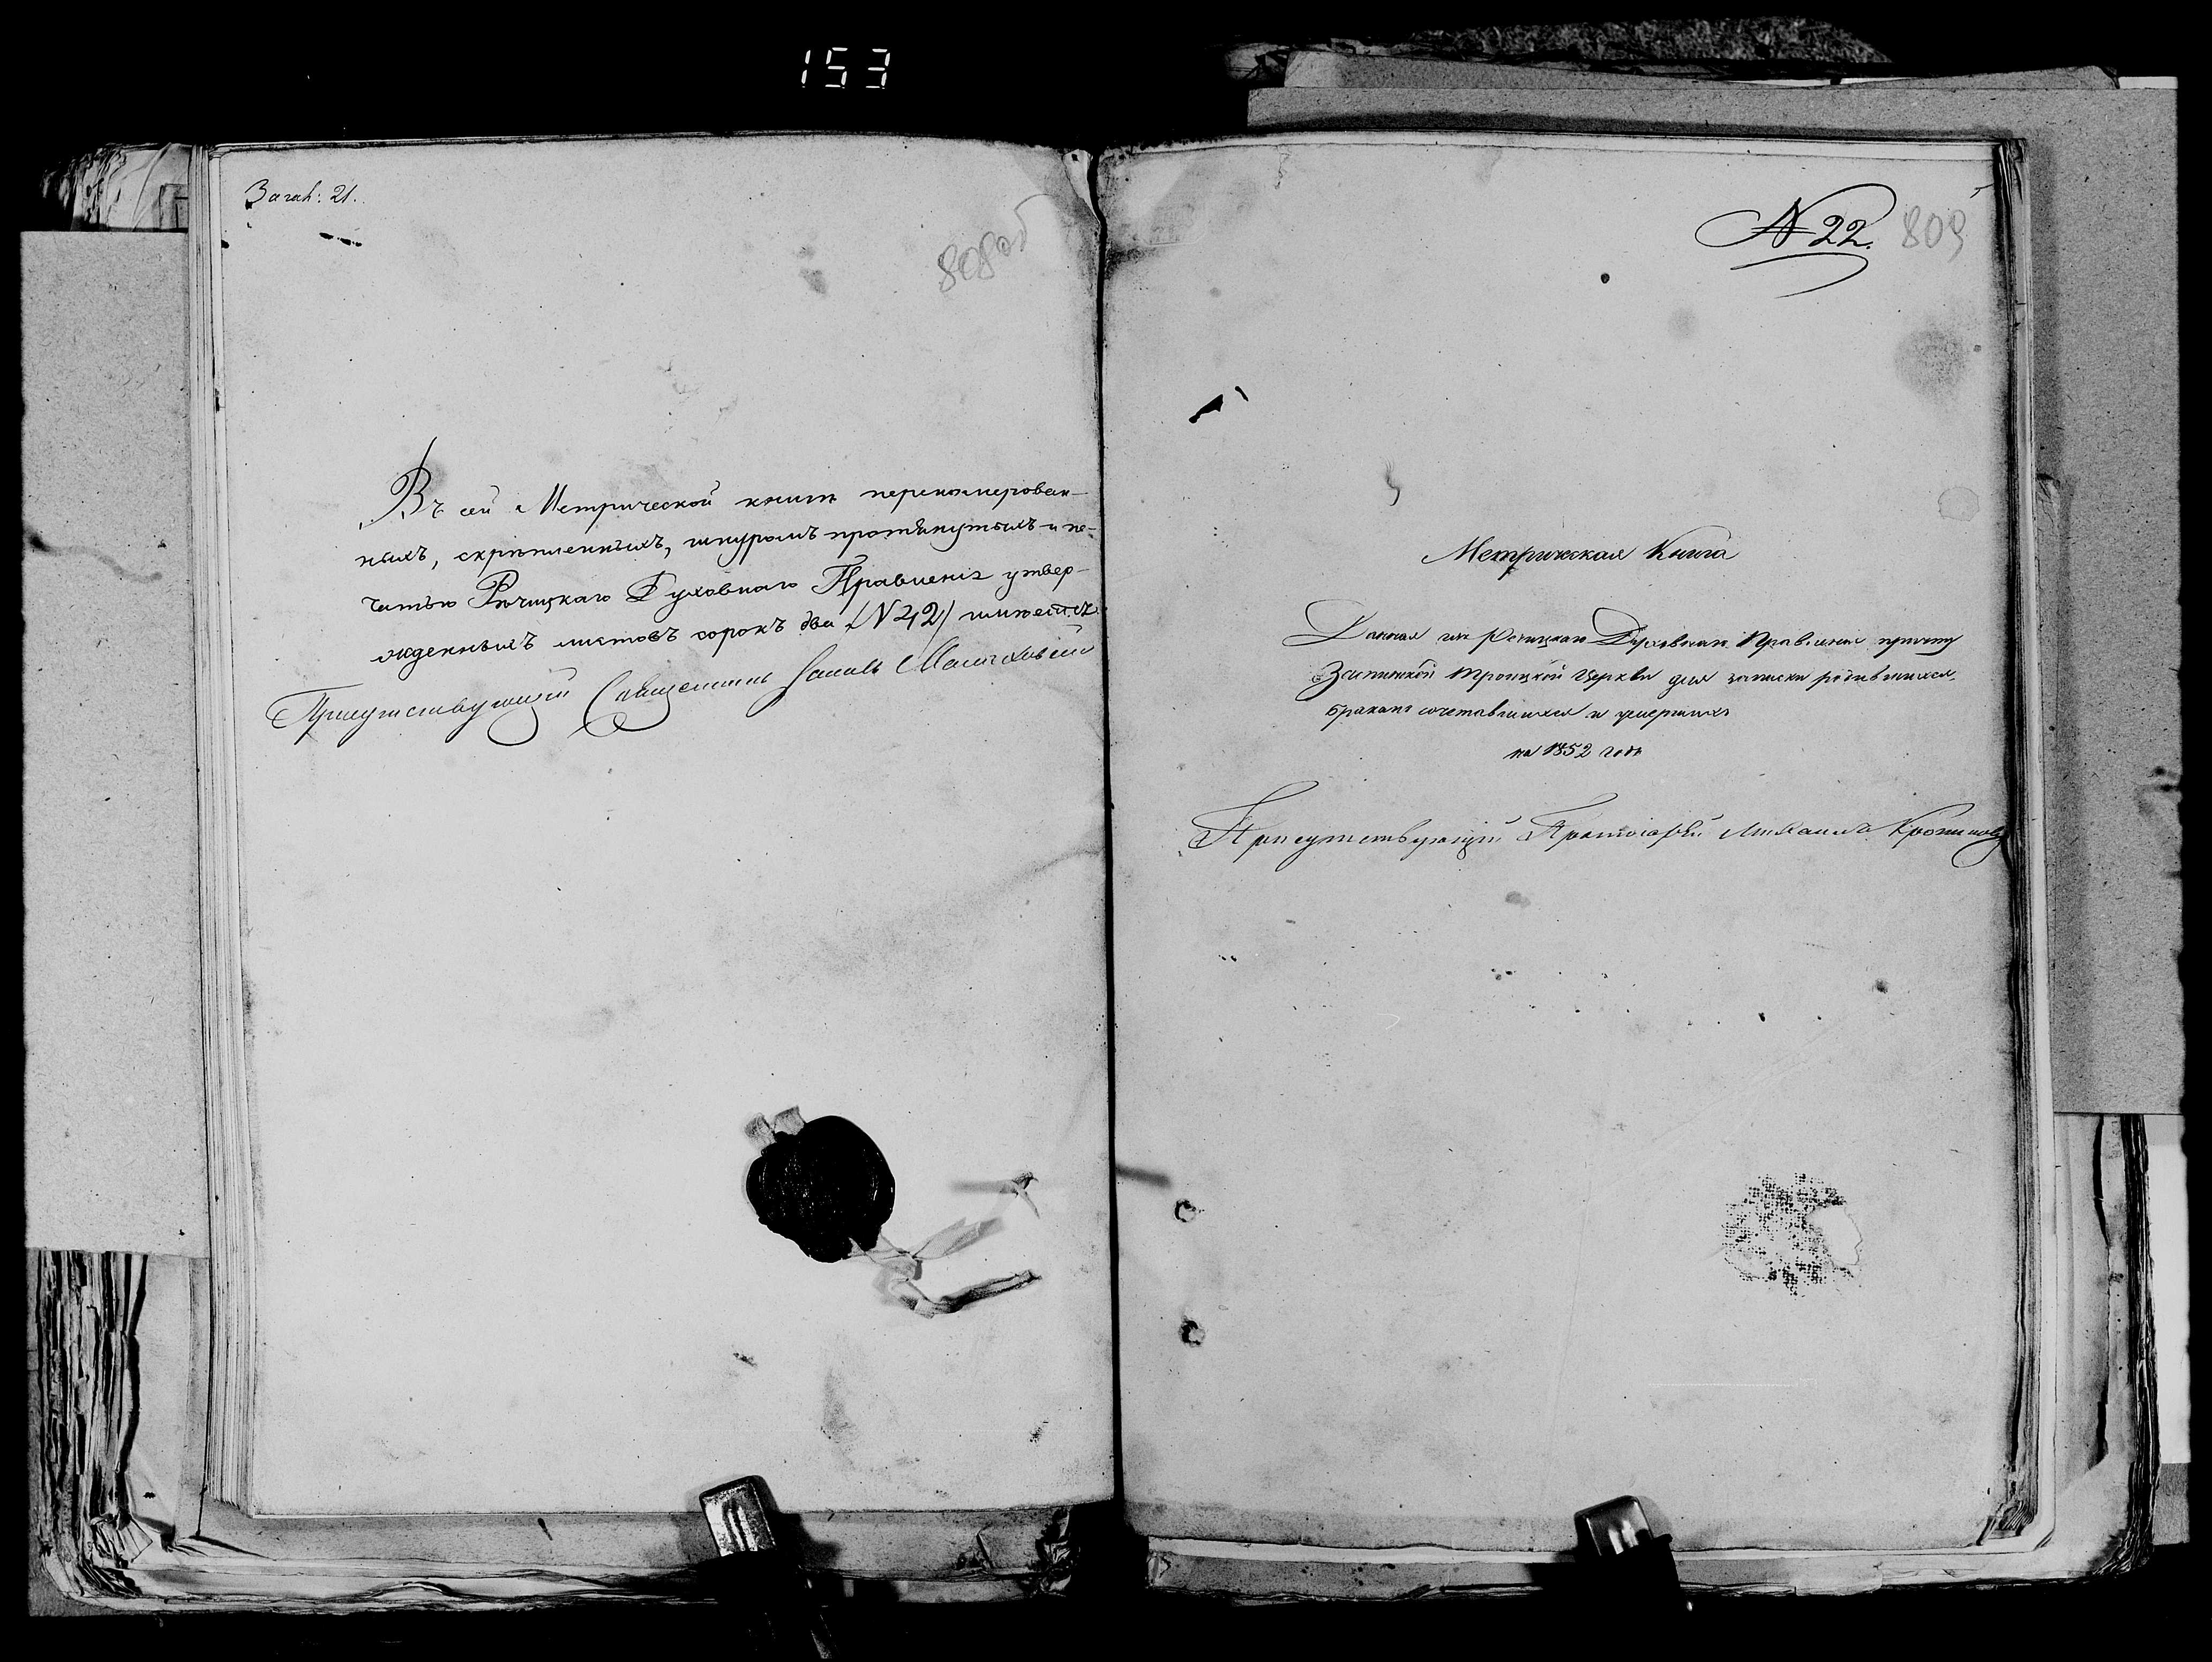 153
Загал: 21.
808 об
Въ сей Метрической книгѣ перенумерован-
ныхъ, скрѣпленныхъ, шнуромъ протянутыхъ и пе-
чатью Рѣчицкаго Духовнаго Правленія утвер-
жденныхъ листовъ сорокъ два (N 42) имѣется
Присутствующій Священникъ
N 22.
809
Метрическая Книга
Данная изъ Речицкаго Духовнаго Правленія причту
Троицкой церкви для записки родившихся,
бракомъ сочетавшихся и умершихъ
на 1852 годъ
Присутствующій Протоіерей Михаилъ